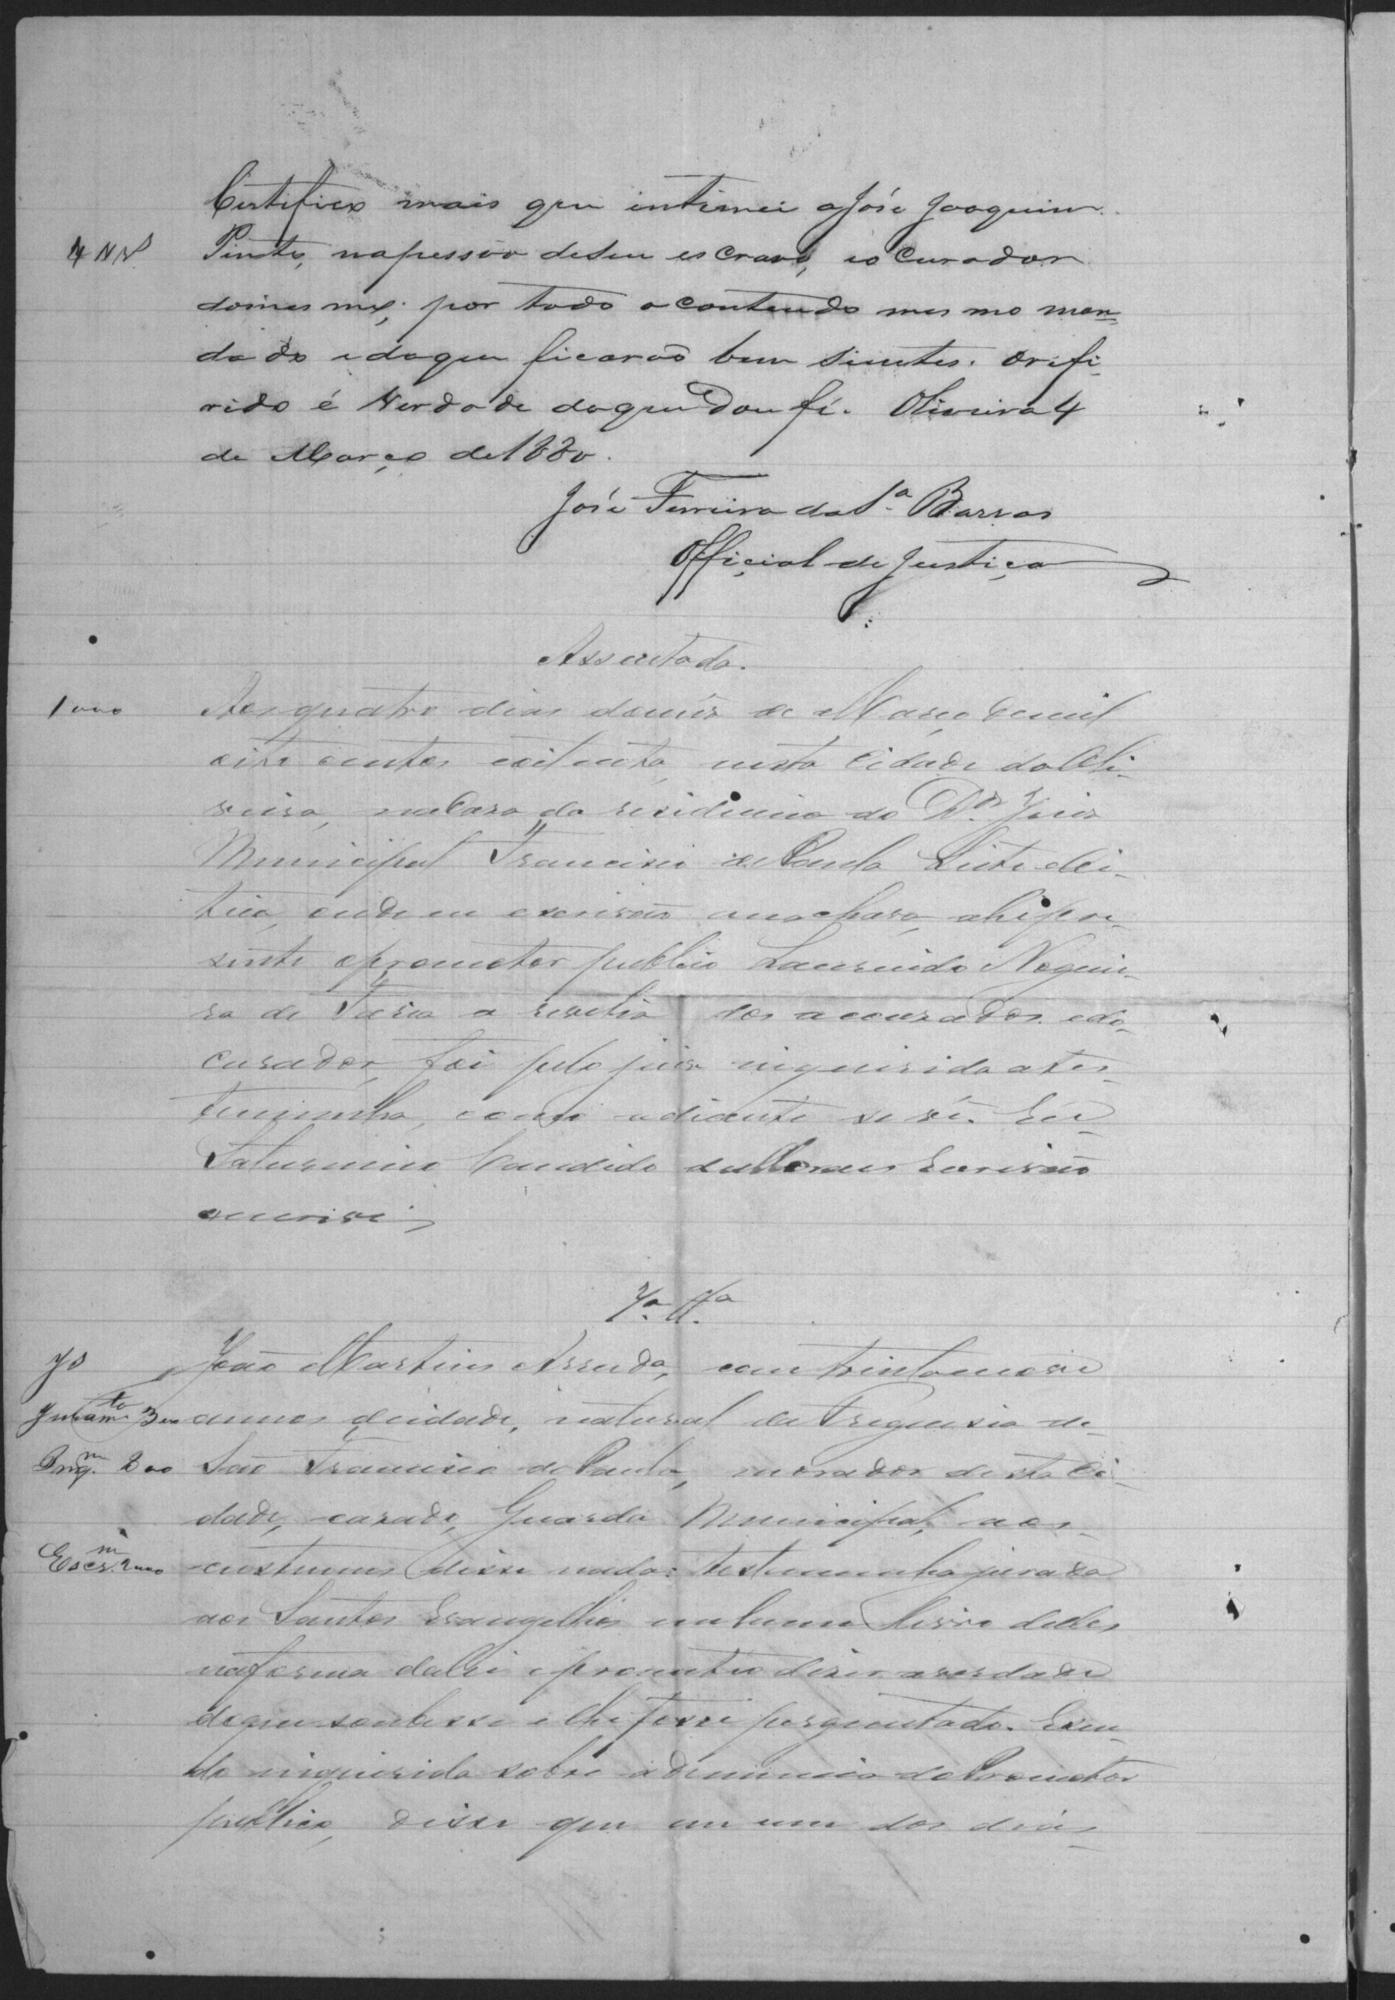 Certifico mais que intimei a José Joaquim
Pinto, na pessôa de seu escravo, e o curador
do mesmo, por todo o contendo mesmo man-
dado e da que ficarão bem sientes. O refi-
rido é Verdade do que Dou fé. Oliveira 4
de Março de 1880.
José Ferreira da S.ª Barros
Official de Justiça
Assentada.
1000 Aos quatro dias do mês de Março de mil
oito centos e oitenta, nesta Cidade da Oli-
veira, na Casa da residencia do Dr. Juiz
Municipal Francisco de Paula Leite e Oi-
ticica, onde eu escrivão me achava, ahi pre-
sente o promotor publico Laurindo Noguei-
ra de Faria a revelia dos accusados e do
curador, foi pelo juiz inquirida a tes-
temunha, como adiante se vê. Eu
Saturnino Candido de Moraes Escrivão
escrivi
7ª Tª
João Martins Arruda, com trinta e nove
Juramto 300 annos de idade, natural da Freguesia de
Inqm. 200 São Francisco de Paula, morador desta Ci-
dade, casado, Guarda Municipal, aos
Escrm. 2000 custumes disse nada: testemunha jurada
aos Santos Evangelhos em hum livro delles
na forma da lei e prometteu diser a verdade
do que soubesse e lhe fosse perguntado. E sen-
do inquirida sobre a denuncia do Promotor
publico, disse que em um dos dias